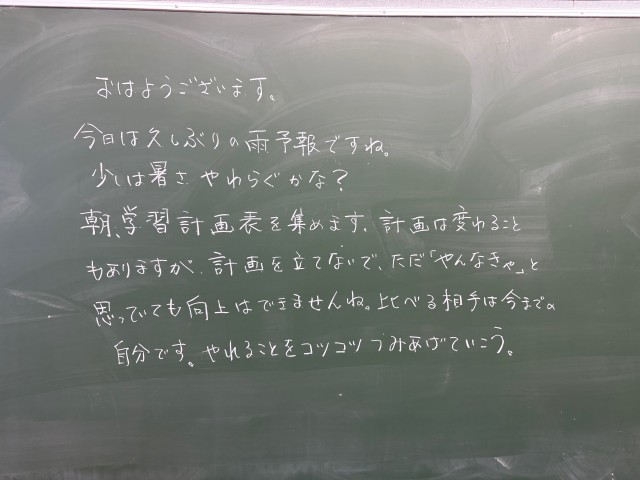 おはようございます。
今日は久しぶりの雨予報ですね。
少しは暑さやわらぐかな？
朝、学習計画表を集めます。計画は変わること
もありますが、計画を立てないで、ただ「やんなきゃ」と
思っていても向上はできませんね。比べる相手は今までの
自分です。やれることをコツコツつみあげていこう。